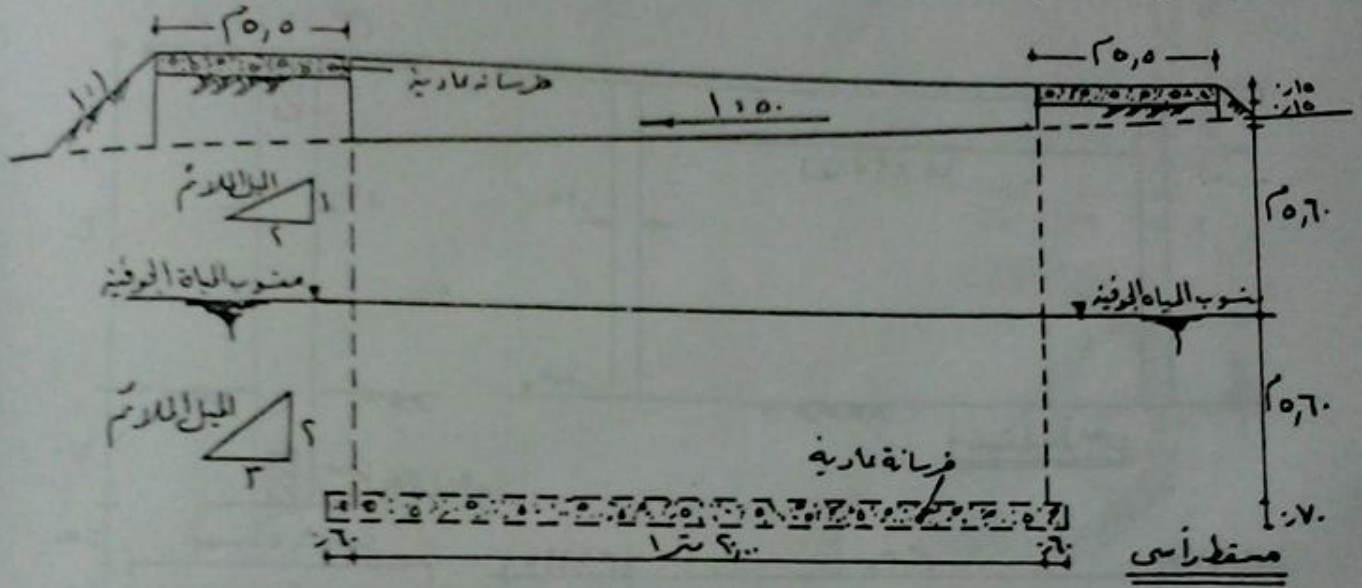 ٥,٥ م
٥,٥ م
خرسانه عادية
١:١
١:٥٠
٠,١٥
٠,١٥
الميل الملائم
١
٢
٥,٦٠ م
منسوب المياة الجوفية
منسوب المياه الجوفية
الميل الملائم
٢
٣
٥,٦٠ م
خرسانة عادية
٠,٧٠
٠,٦٠
٢٠,٠٠ مترا
٠,٦٠
مسقط رأسى